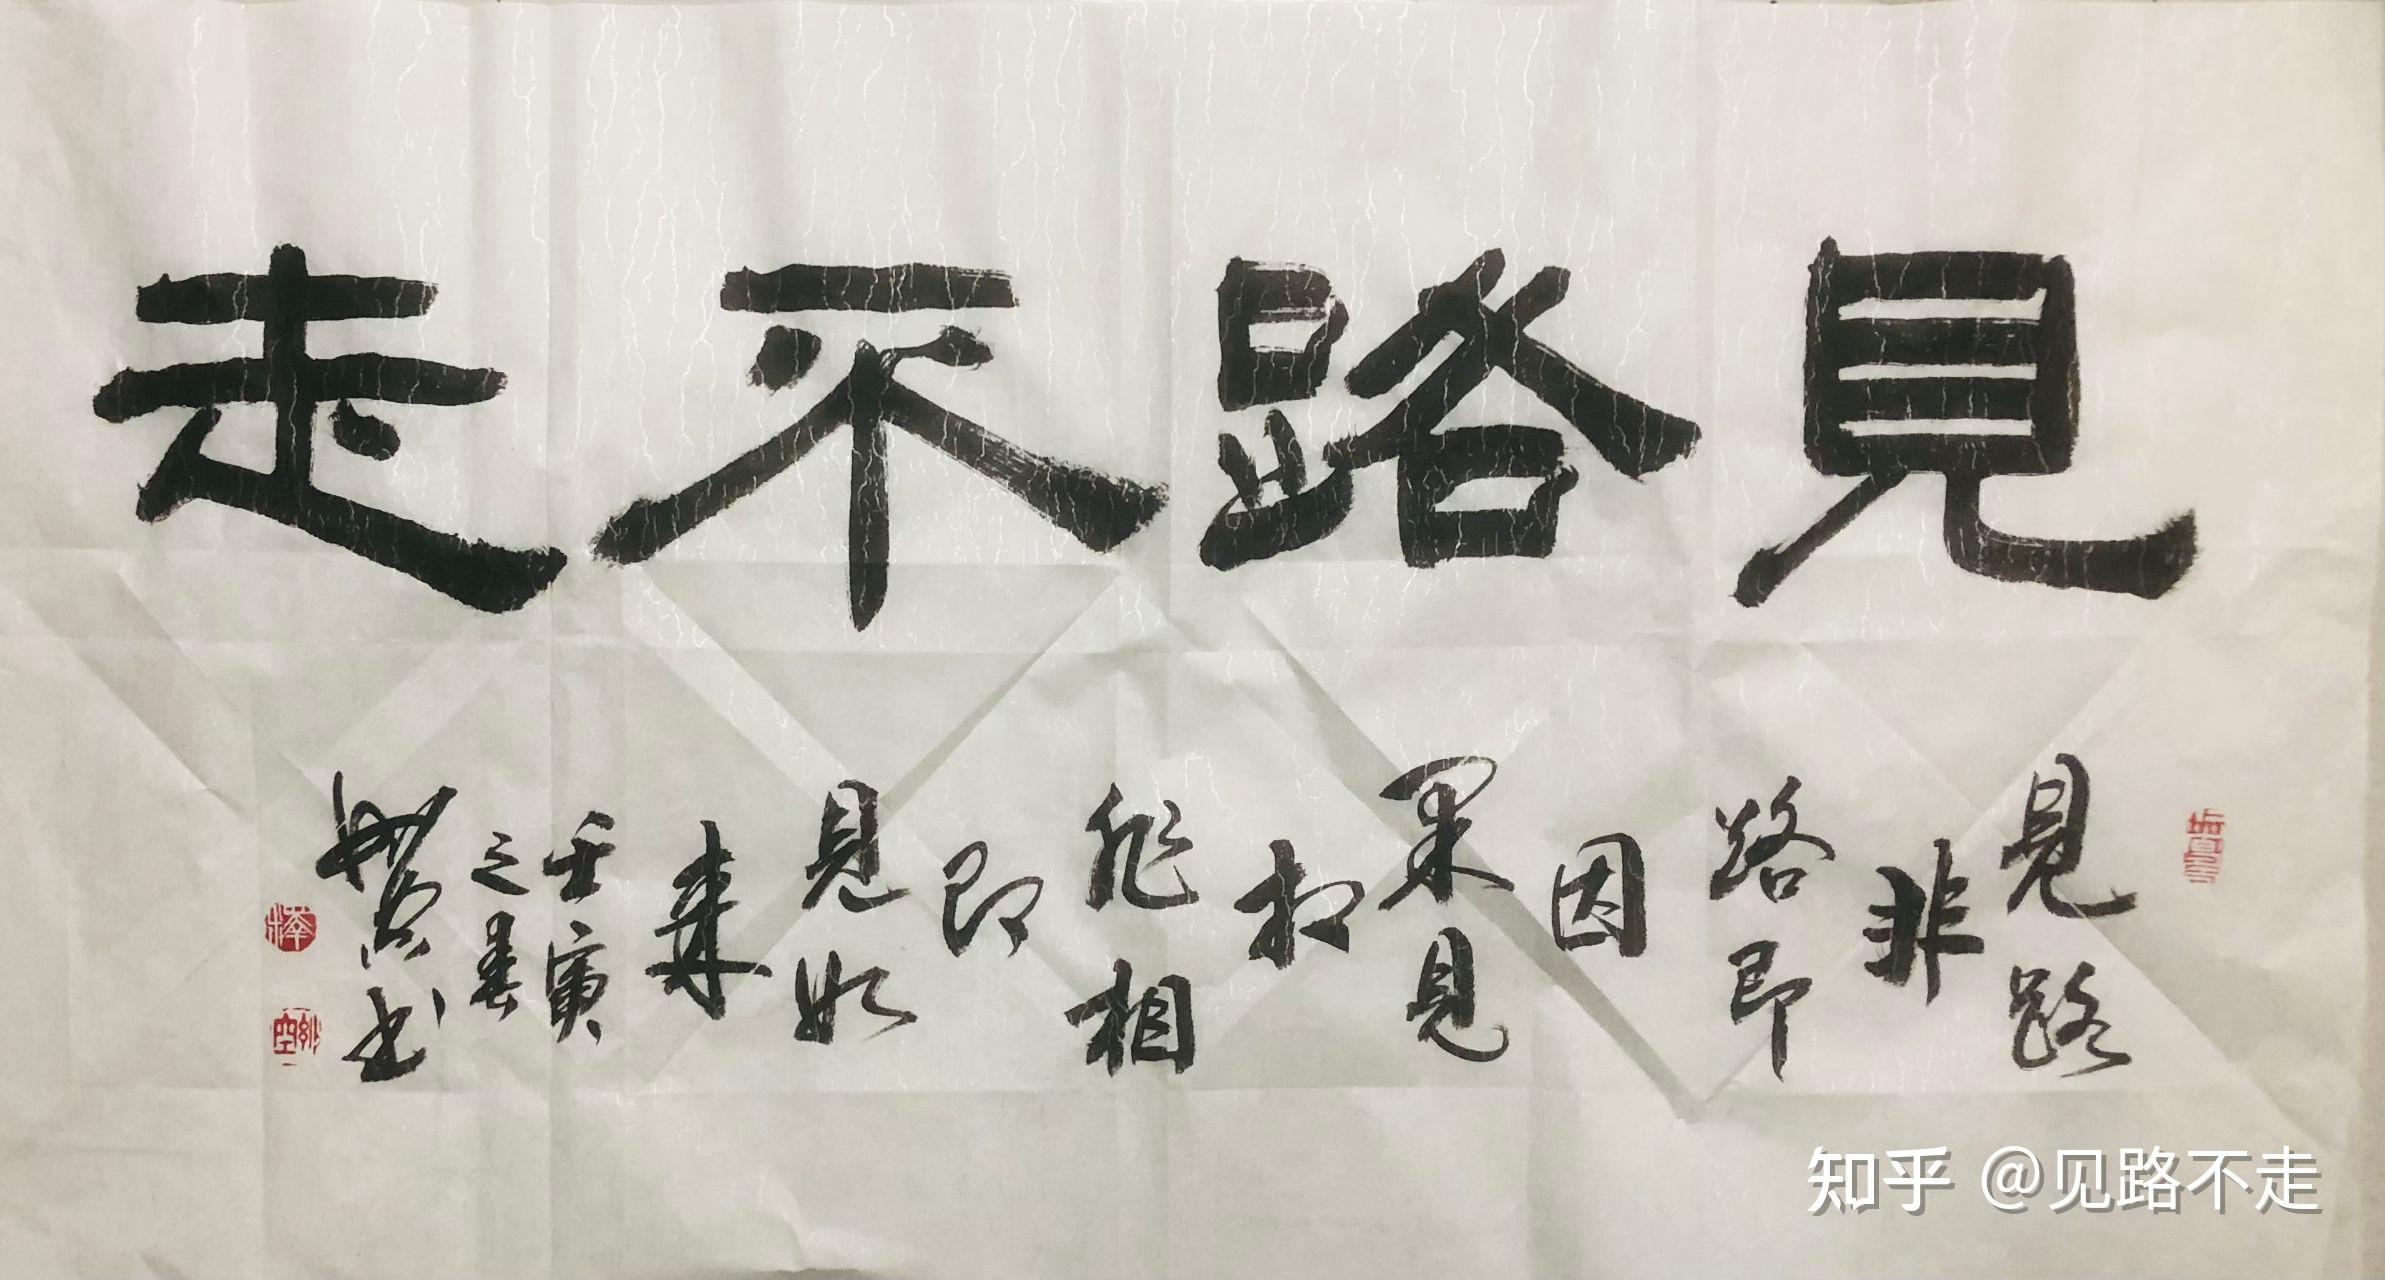 見路不走
見路
非
路即
因
果見
相
非相
即
見如
来
壬寅
之春
妙空书
妙空
知乎 @见路不走